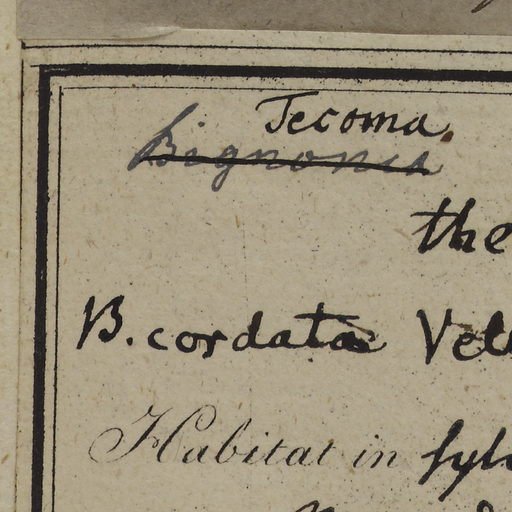 Tecoma.
Bignonia
the
B. cordata Vell
Habitat in sylv